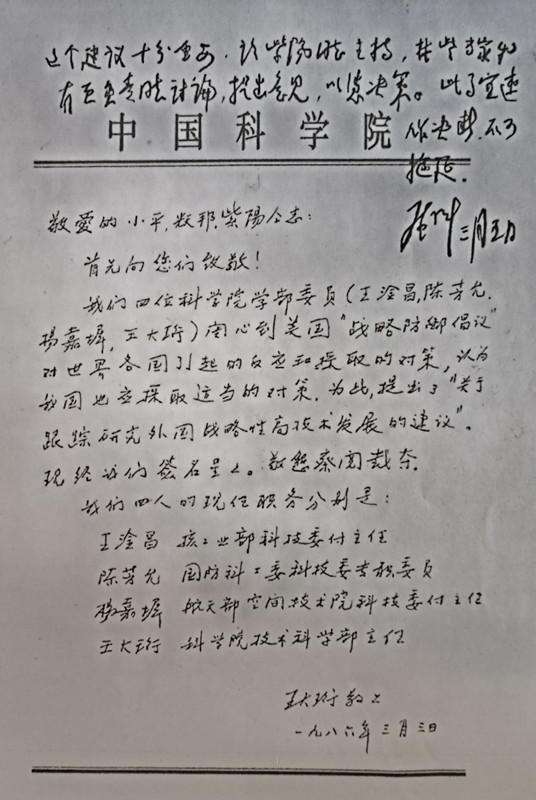 这个建议十分重要，请紫阳同志主持，找些专家和
有关负责同志讨论，提出意见，以凭决策。此事宜速
作决断，不可
拖延。
三月五日
中国科学院
敬爱的小平、耀邦、紫阳同志：
首先向您们致敬！
我们四位科学院学部委员（王淦昌，陈芳允，
杨嘉墀，王大珩）关心到美国“战略防御倡议”
对世界各国引起的反应和采取的对策，认为
我国也应采取适当的对策，为此，提出了“关于
跟踪研究外国战略性高技术发展的建议”。
现经我们签名呈上。敬恳察阅裁夺。
我们四人的现任职务分别是：
王淦昌 核工业部科技委付主任
陈芳允 国防科工委科技委专职委员
杨嘉墀 航天部空间技术院科技委付主任
王大珩 科学院技术科学部主任
王大珩敬上
一九八六年三月三日